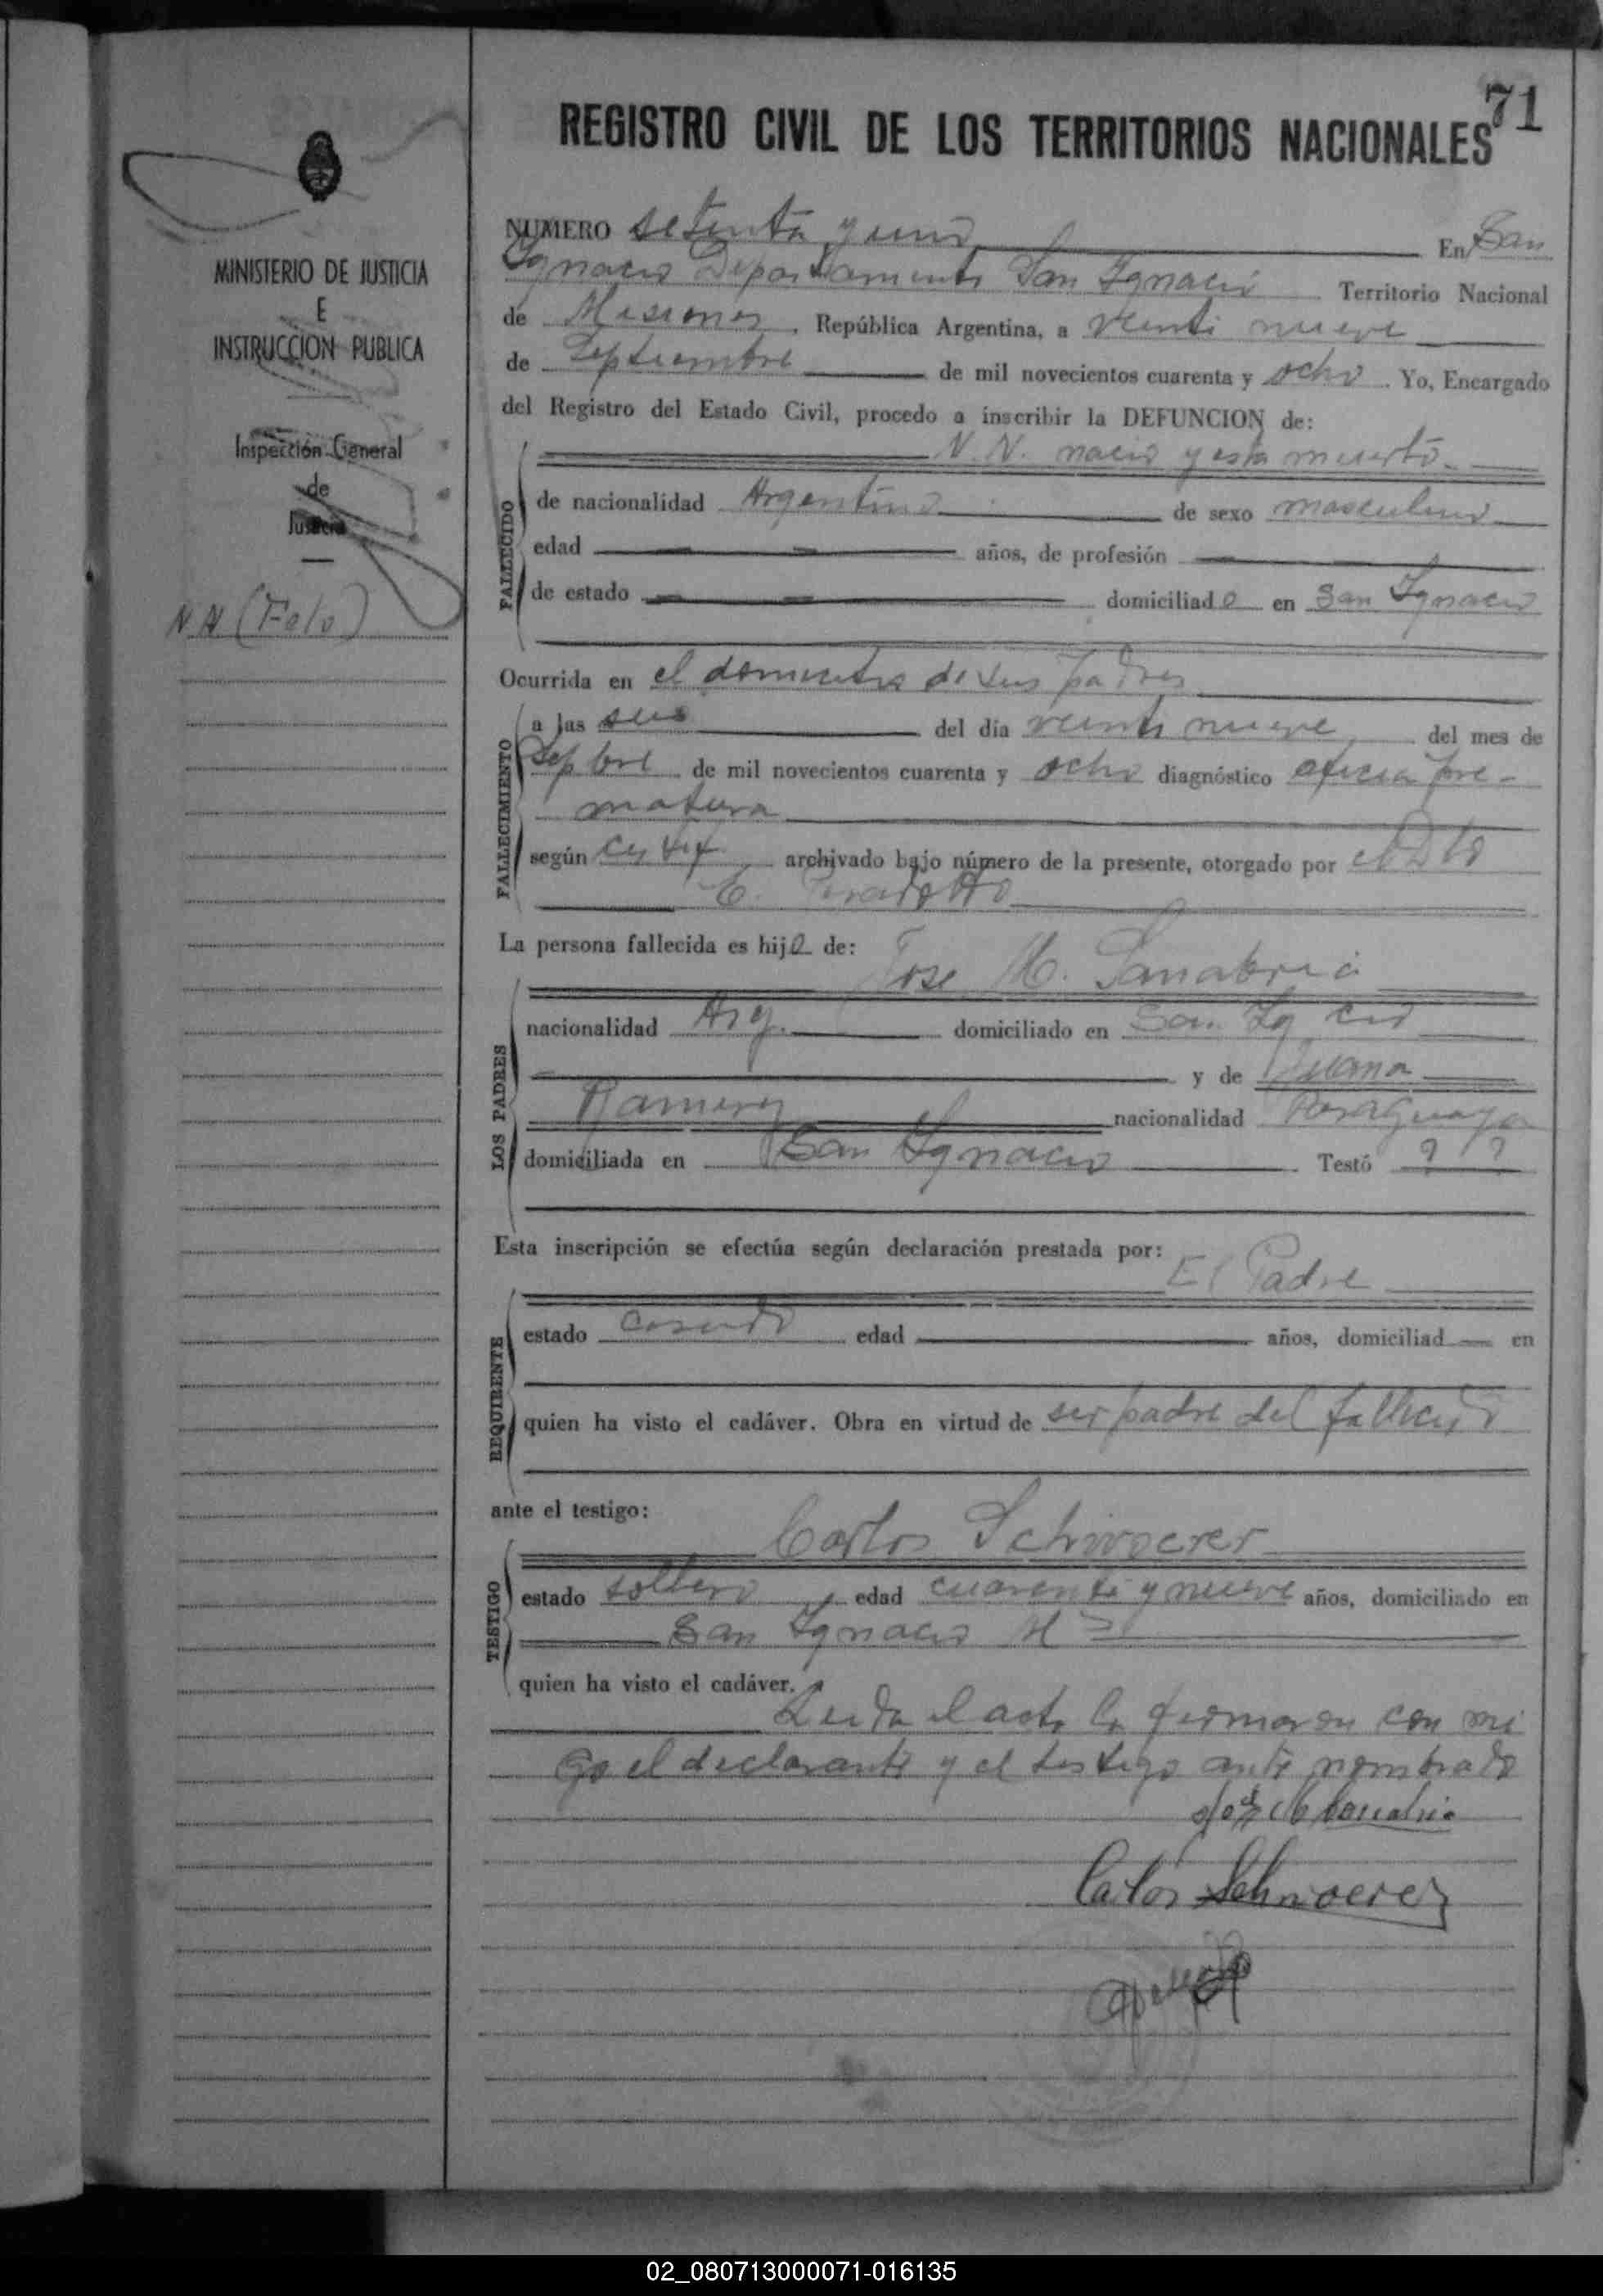 71
REGISTRO CIVIL DE LOS TERRITORIOS NACIONALES
MINISTERIO DE JUSTICIA
E
INSTRUCCION PUBLICA
Inspección General
de
Justicia
N N (Feto)
NUMERO setenta y uno En San
Ignacio Departamento San Ignacio Territorio Nacional
de Misiones, República Argentina, a veinti nueve
de Septiembre de mil novecientos cuarenta y ocho. Yo, Encargado
del Registro del Estado Civil, procedo a inscribir la DEFUNCION de:
N. N. nacio y esta muerto
FALLECIDO
de nacionalidad Argentino de sexo masculino
edad años, de profesión
de estado domiciliado en San Ignacio
Ocurrida en el domicilio de sus padres
FALLECIMIENTO
a las seis del día veinti nueve del mes de
Sepbre de mil novecientos cuarenta y ocho diagnóstico pre-
matura
según archivado bajo número de la presente, otorgado por
La persona fallecida es hijo de:
Jose M. Sanabria
LOS PADRES
nacionalidad Arg. domiciliado en San Ig cio
y de Juana
Ramirez nacionalidad Paraguaya
domiciliada en San Ignacio Testó ? ?
Esta inscripción se efectúa según declaración prestada por:
El Padre
REQUIRENTE
estado casado edad años, domiciliad en
quien ha visto el cadáver. Obra en virtud de ser padre del fallecido
ante el testigo:
Carlos Schwoerer
TESTIGO
estado soltero edad cuarenta y nueve años, domiciliado en
San Ignacio Ms
quien ha visto el cadáver.
Leida el acta la firmaron con mi
go el declarante y el testigo ante nombrado
José M Sanabria
Carlos Schwoerer
02_080713000071-016135